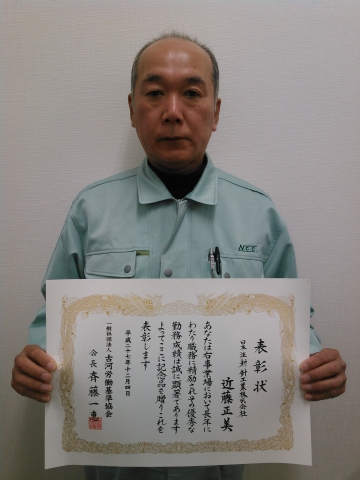 表彰状
日本注射針工業株式会社
近藤正美
あなたは右事業場において長年に
わたり職務に精励されその優秀な
勤務成績は誠に顕著であります
よってここに記念品を贈りこれを
表彰します
平成二十七年十二月四日
一般社団法人 古河労働基準協会
会長 斉藤一恵